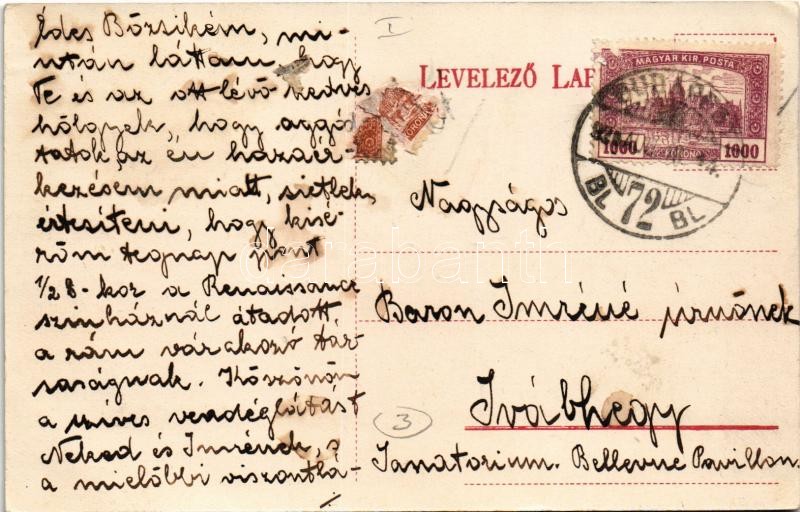 Édes Bözsikém, mi-
után láttam, hogy
Te és az ott lévő kedves
hölgyek, hogy aggód-
tatok az én hazaér-
kezésem miatt, sietlek
értesíteni, hogy kísé-
rőm tegnap pont
1/2 8-kor a Renaissance
szinháznál átadott
a rám várakozó tár-
saságnak. Köszönöm
a szíves vendéglátást
Neked és Imrének, s
a mielőbbi viszontlá-
I
LEVELEZŐ LAP
MAGYAR KIR. POSTA
BUDAPEST
1000 KORONA 1000
72
BL BL
KORONA
Nagyságos
Baron Imréné úrnőnek
Svábhegy
Sanatorium. Bellevue Pavillon.
3
darabanth